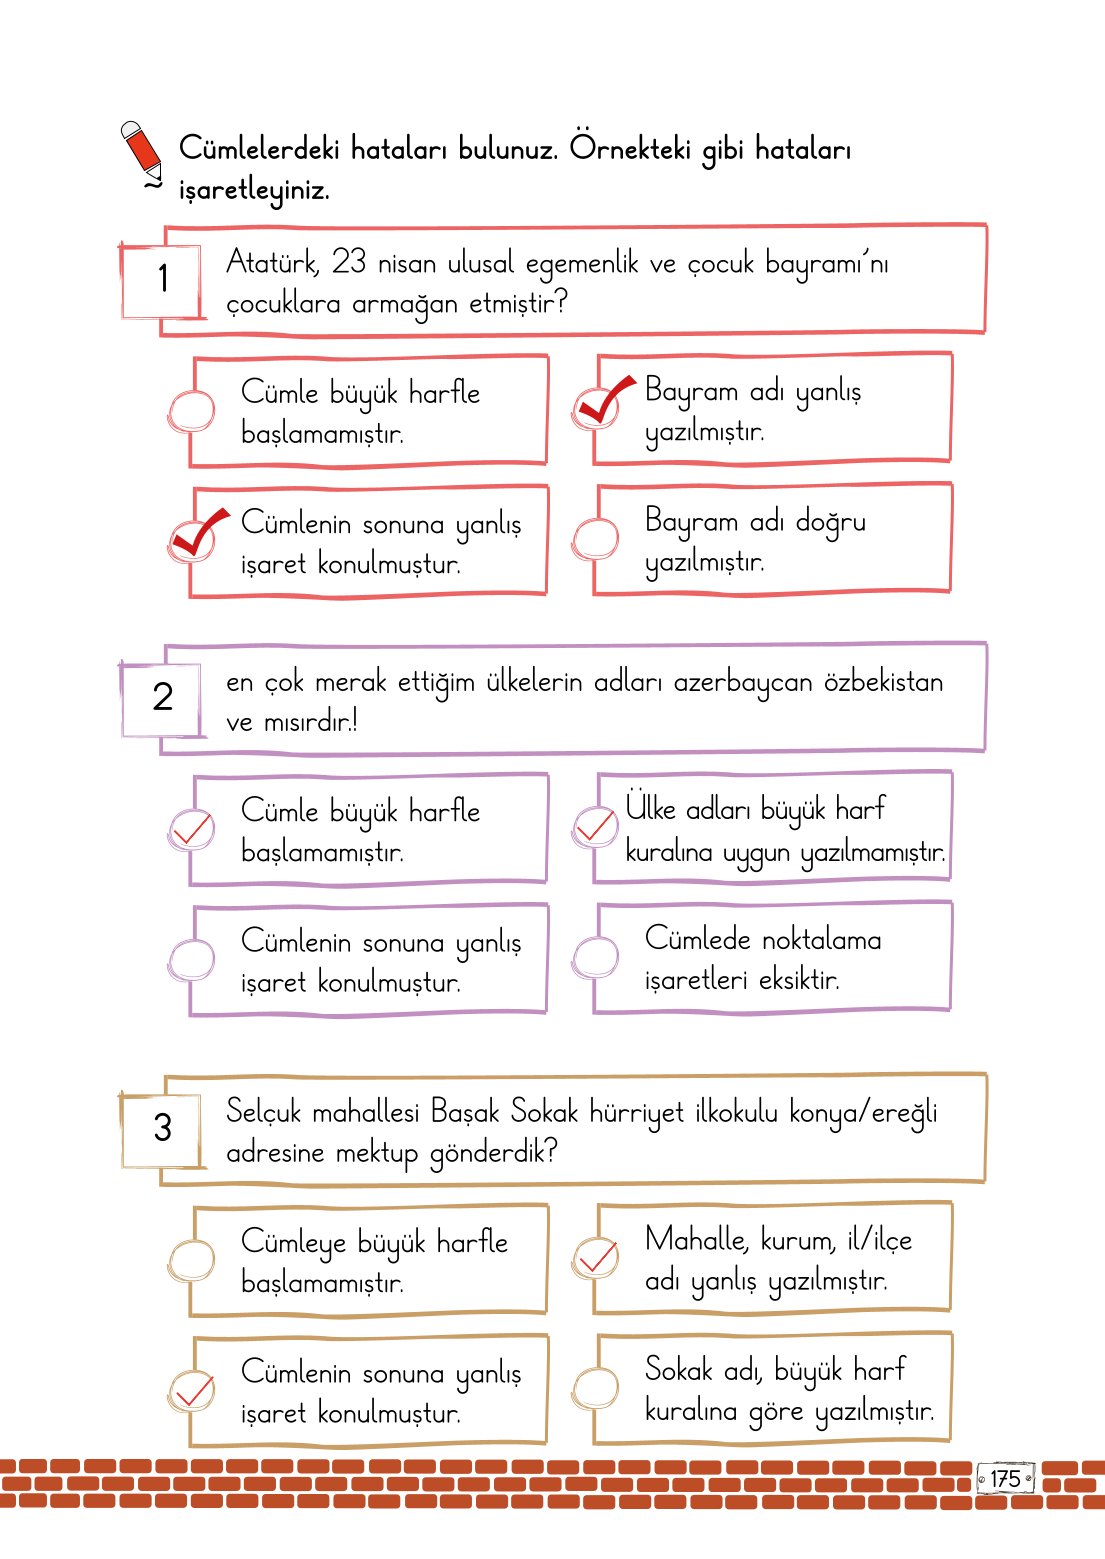 Cümlelerdeki hataları bulunuz. Örnekteki gibi hataları
işaretleyiniz.
1
Atatürk, 23 nisan ulusal egemenlik ve çocuk bayramı’nı
çocuklara armağan etmiştir?
Cümle büyük harfle
başlamamıştır.
Bayram adı yanlış
yazılmıştır.
Cümlenin sonuna yanlış
işaret konulmuştur.
Bayram adı doğru
yazılmıştır.
2
en çok merak ettiğim ülkelerin adları azerbaycan özbekistan
ve mısırdır.!
Cümle büyük harfle
başlamamıştır.
Ülke adları büyük harf
kuralına uygun yazılmamıştır.
Cümlenin sonuna yanlış
işaret konulmuştur.
Cümlede noktalama
işaretleri eksiktir.
3
Selçuk mahallesi Başak Sokak hürriyet ilkokulu konya/ereğli
adresine mektup gönderdik?
Cümleye büyük harfle
başlamamıştır.
Mahalle, kurum, il/ilçe
adı yanlış yazılmıştır.
Cümlenin sonuna yanlış
işaret konulmuştur.
Sokak adı, büyük harf
kuralına göre yazılmıştır.
175